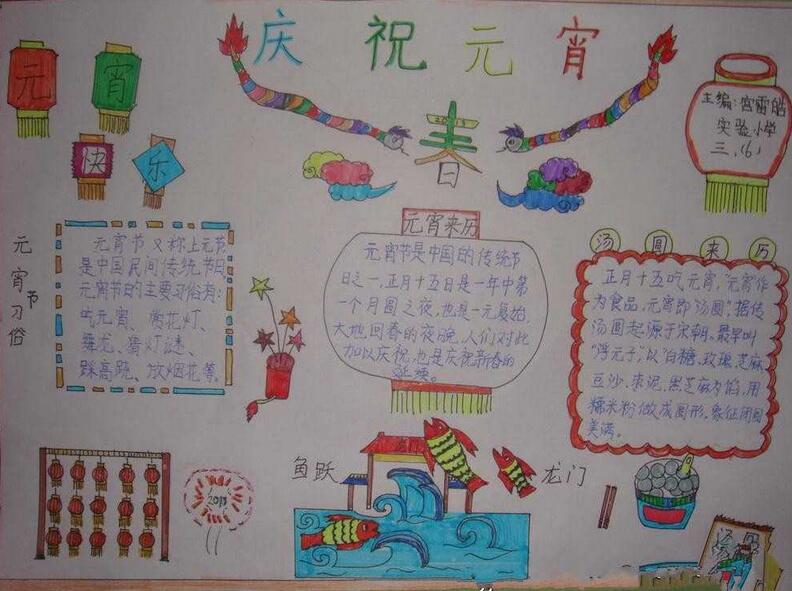 庆祝元宵
元
宵
快
乐
2013
春
主编:宫雷皓
实验小学
三、(6)
元宵节习俗
元宵节又称上元节
是中国民间传统节日
元宵节日的主要习俗有:
吃元宵、赏花灯、
舞龙、猜灯谜、
踩高跷、放烟花等。
元宵来历
元宵节是中国的传统节
日之一,正月十五日是一年中第
一个月圆之夜,也是一元复始,
大地回春的夜晚,人们对此
加以庆祝,也是庆祝新春的
延续。
汤圆来历
正月十五吃元宵,“元宵作
为食品,元宵即“汤圆”据传
汤圆起源于宋朝。最早叫
“浮元子”,以白糖、玫瑰、芝麻
豆沙、枣泥、黑芝麻为馅,用
糯米粉做成圆形。象征团圆
美满。
鱼跃
龙门
2013